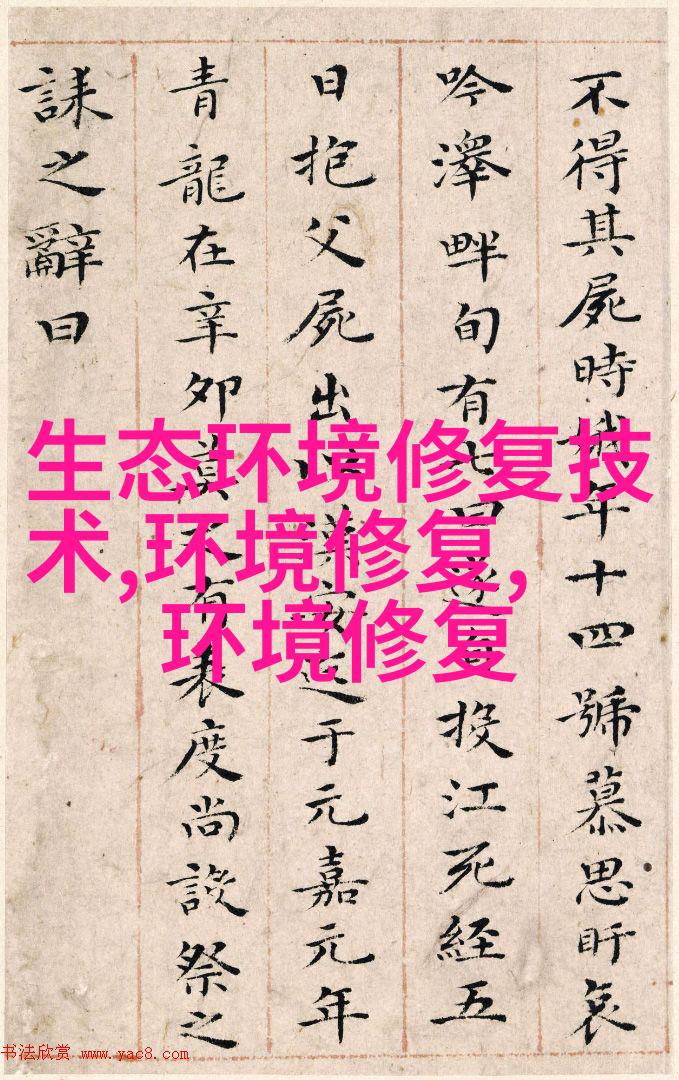 不得其屍時娥年十四號慕思盱哀
吟澤畔旬有七日遂自投江死經五
日抱父屍出以漢安迄于元嘉元年
青龍在辛卯莫之有表度尚設祭之
誄之辭曰
生态环境修复技
术,环境修复,
环境修复
书法欣赏 www.yac8.com